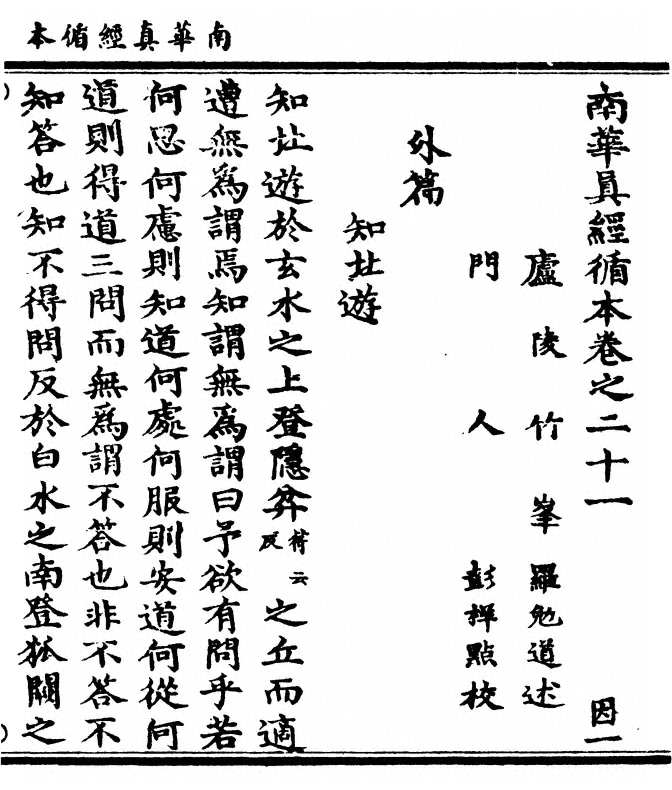 南華真經循本
南華真經循本卷之二十一 因一
廬陵竹峯羅勉道述
門人彭祥點校
外篇
知北遊
知北遊於玄水之上登隱弅符云反之丘而適
遭無為謂焉知謂無為謂曰予欲有問乎若
何思何慮則知道何處何服則安道何從何
道則得道三問而無為謂不答也非不答不
知答也知不得問反於白水之南登狐闋之